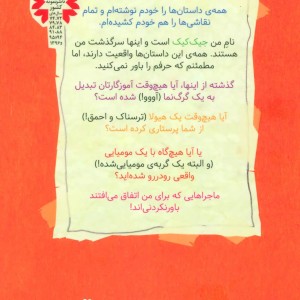 همه‌ی داستان‌ها را خودم نوشته‌ام و تمام
نقاشی‌ها را هم خودم کشیده‌ام.
نامِ من جیک‌کیک است و اینها سرگذشت من
هستند. همه‌ی این داستان‌ها واقعیت دارند، اما
مطمئنم که حرفم را باور نمی‌کنید.
گذشته از اینها، آیا هیچ‌وقت آموزگارتان تبدیل
به یک گرگ‌نما (آوووا) شده است؟
آیا هیچ‌وقت یک هیولا (ترسناک و احمق!)
از شما پرستاری کرده است؟
یا آیا هیچ‌گاه با یک مومیایی
(و البته یک گربه‌ی مومیایی‌شده!)
واقعی رودررو شده‌اید؟
ماجراهایی که برای من اتفاق می‌افتند
باورنکردنی‌اند!